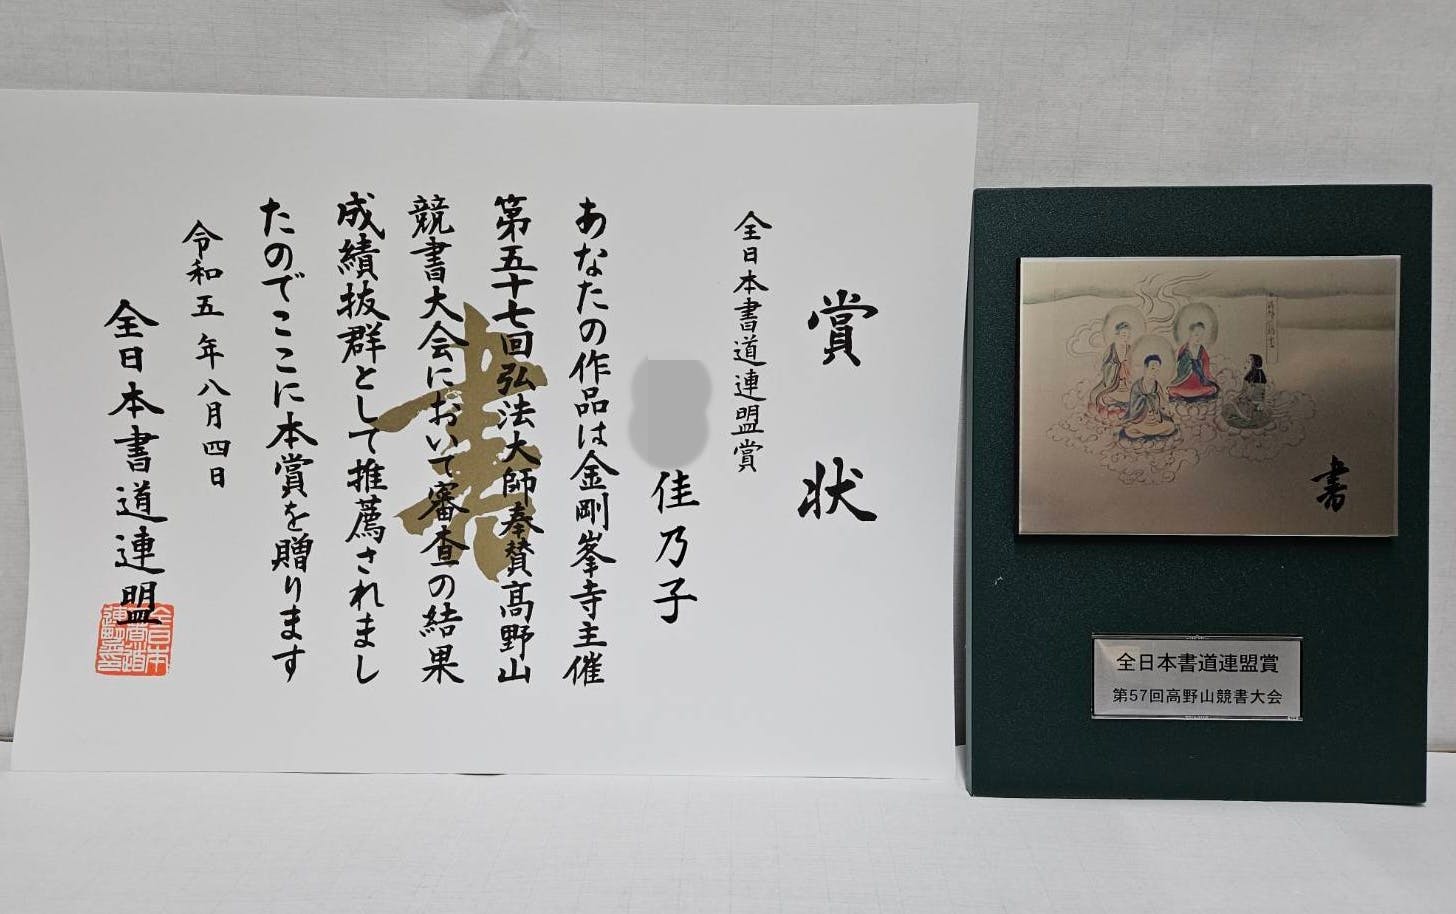 賞状
全日本書道連盟賞
佳乃子
あなたの作品は金剛峯寺主催
第五十七回弘法大師奉賛高野山
競書大会において審査の結果
成績抜群として推薦されまし
たのでここに本賞を贈ります
令和五年八月四日
全日本書道連盟
書
書
全日本書道連盟賞
第57回高野山競書大会